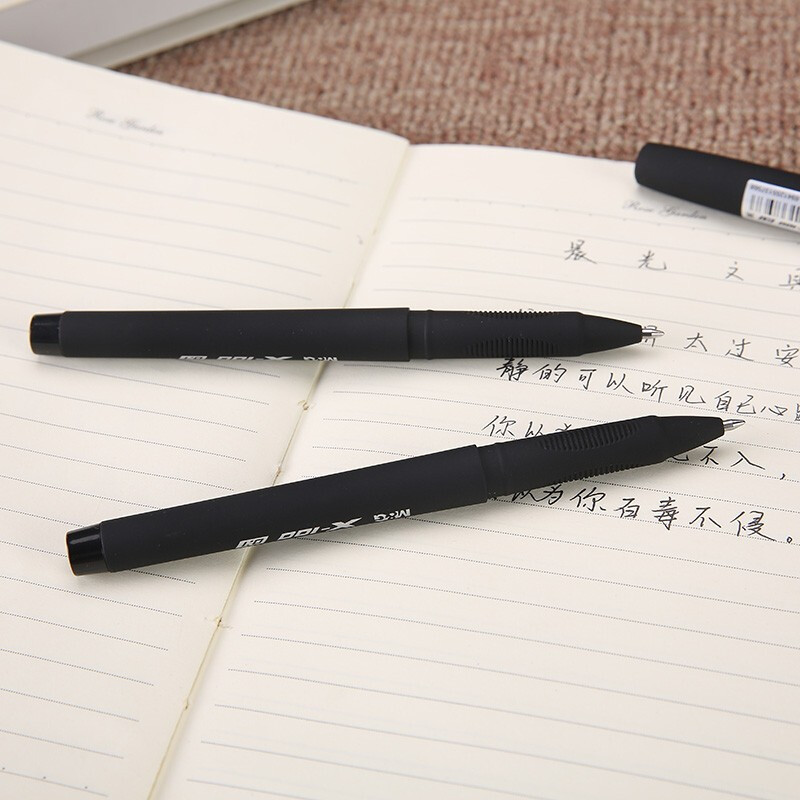 Rose Garden
Rose Garden
晨光文具
太过安
静的可以听见自己心
你以为
不入，
以为你百毒不侵。
M&G
X-100
M&G
X-100